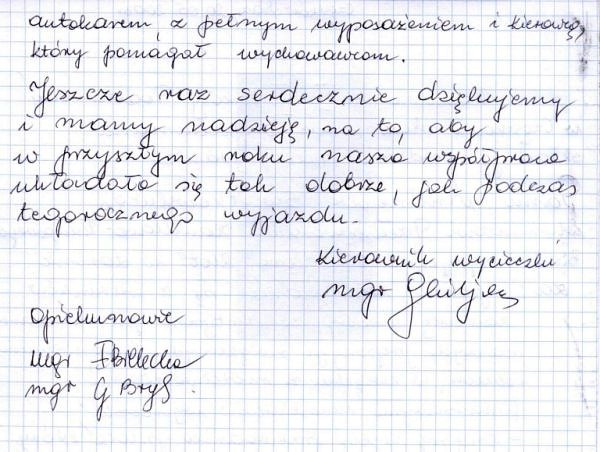 autokarem, z pełnym wyposażeniem i kierowcą,
który pomagał wychowawcom.
Jeszcze raz serdecznie dziękujemy
i mamy nadzieję, na to, aby
w przyszłym roku nasza współpraca
układała się tak dobrze, jak podczas
tegorocznego wyjazdu.
Kierownik wycieczki
mgr
Opiekunowie
mgr I Bielecka
mgr G Bryś